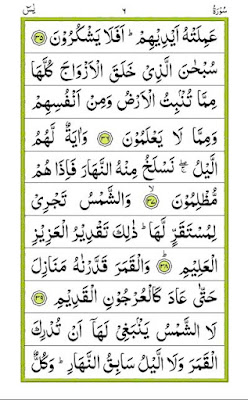 سُوْرَةُ ٦ يٰسٓ
عَمِلَتْهُ اَيْدِيْهِمْ ؕ اَفَلَا يَشْكُرُوْنَ ﴿۳۵﴾
سُبْحٰنَ الَّذِىْ خَلَقَ الْاَزْوَاجَ كُلَّهَا
مِمَّا تُنْۢبِتُ الْاَرْضُ وَمِنْ اَنْفُسِهِمْ
وَمِمَّا لَا يَعْلَمُوْنَ ﴿۳۶﴾ وَاٰيَةٌ لَّهُمُ
الَّيْلُ ۖۚ نَسْلَخُ مِنْهُ النَّهَارَ فَاِذَا هُمْ
مُّظْلِمُوْنَ ﴿۳۷﴾ۙ وَالشَّمْسُ تَجْرِىْ
لِمُسْتَقَرٍّ لَّهَا ؕ ذٰلِكَ تَقْدِيْرُ الْعَزِيْزِ
الْعَلِيْمِ ﴿۳۸﴾ؕ وَالْقَمَرَ قَدَّرْنٰهُ مَنَازِلَ
حَتّٰى عَادَ كَالْعُرْجُوْنِ الْقَدِيْمِ ﴿۳۹﴾
لَا الشَّمْسُ يَنْۢبَغِىْ لَهَاۤ اَنْ تُدْرِكَ
الْقَمَرَ وَلَا الَّيْلُ سَابِقُ النَّهَارِ ؕ وَكُلٌّ